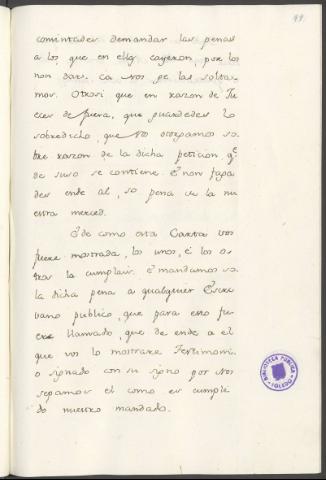 99.
comintades demandar las penas
a los que en ellas cayeron, por los
non dars. ca nos ge las solta-
mos. Otrosi que en razon de Jue-
ces de fuera, que guardedes lo
sobredicho, que nos otorgamos so-
bre razon de la dicha peticion q.e
de suso se contiene. E non faga-
des ende al, so pena de la nu-
estra merced.
E de como esta Carta vos
fuere mostrada, los unos, é los o-
tros la cumplair. E mandamos so
la dicha pena a qualquier Escri-
vano publico, que para esto fu-
ere llamado, que de ende a el
que vos lo mostrare Testimoni-
o signado con su signo por Nos
sepamos el como es cumpli-
do nuestro mandado.
BIBLIOTECA PUBLICA
TOLEDO